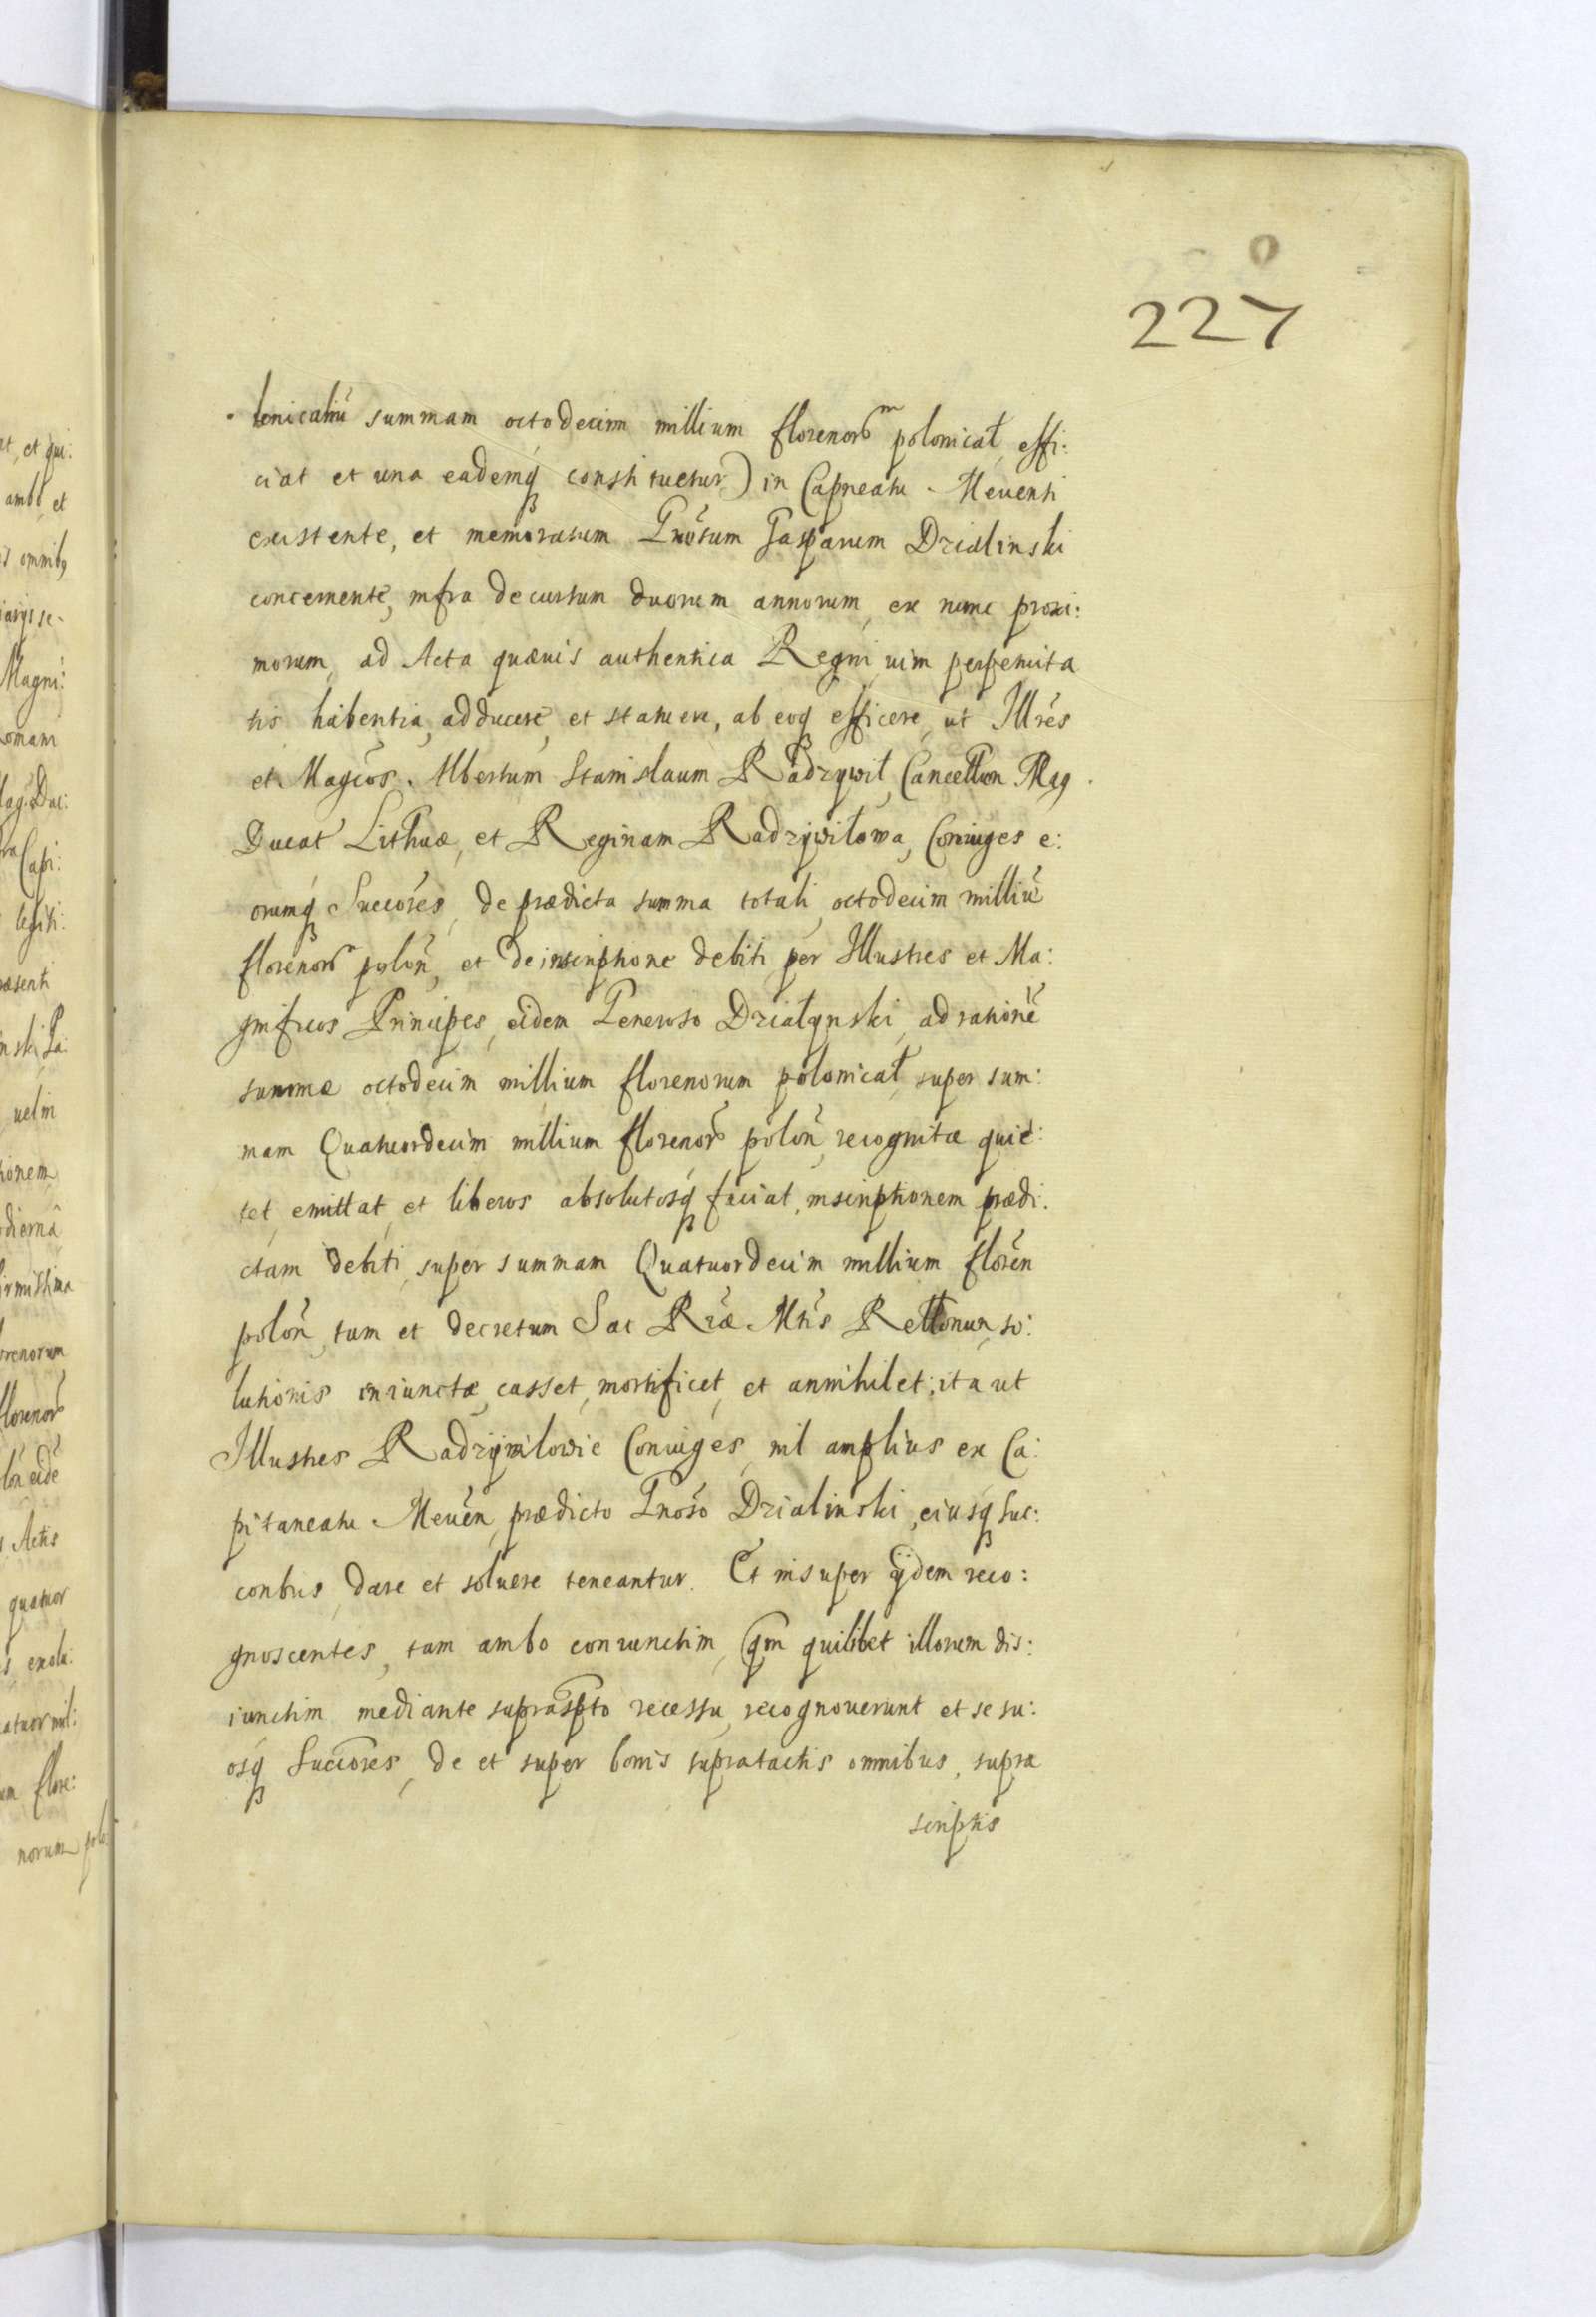 227
lonicaliũ summam octodecim millium florenorm polonicał, effi:
ciat et una eademq́ constituetur) in Capneatu Meuensi
existente, et memoratum Gnõsum Gasparum Dzialinski
concernente, infra decursum duorum annorum, ex nunc proxi:
morum, ad Acta quæuis authentica Regni uim perpetuita
tis habentia, adducere, et statuere, ab eoq́ efficere, ut Illrẽs
et Magcos. Albertum Stanislaum Radzywił, Cancellrm Mag
Ducat Lithuæ, et Reginam Radzywiłowa, Coniuges e:
orumq́ Succores, de prædicta summa totali octodecim milliũ
florenor polon̄, et de inscriptione debiti per Illustres et Ma:
gnificos Principes, eidem Generoso Działynski, ad rationẽ
summæ octodecim millium florenorum polonicał, super sum:
mam Quatuordecim millium florenor polon̄, recognitæ quie:
tet, emittat, et liberos absolutosq́ faciat, inscriptionem prædi:
ctam debiti, super summam Quatuordecim millium floren̄
polon̄, tum et decretum Sac Rr̃æ Mtis Rełłonum, so:
lutionis iniunctæ, casset, mortificet, et annihilet; ita ut
Illustres Radzywilowie Coniuges, nil amplius ex Ca:
pitaneatu Meuen̄, prædicto Gnoso Dzialinski, eiusq́ Suc:
coribus, dare et soluere teneantur. Et insuper ijdem reco:
gnoscentes, tam ambo coniunctim, qm quilibet illorum dis:
iunctim mediante suprascpto recessu, recognouerunt et se su:
osq́ Succores, de et super bonis supratactis omnibus, supra
scriptis